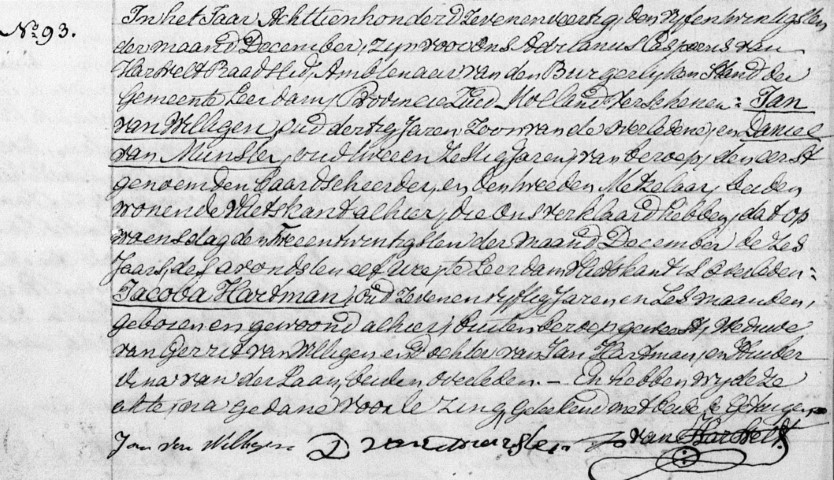 No. 93.
In het Jaar Achttienhonderd Zevenenveertig, den vyfentwintigsten
der maand December, zyn voor ons Adrianus Caspoens van
Hartvelt Raad Lid, Ambtenaar van den Burgerlyken Stand der
Gemeente Leerdam, Provincie Zuid Holland, verschenen: Jan
van Willigen, oud dertig Jaren Zoon van de overledene, en Daniel
van Munster, oud twee en Zestig Jaren, van beroep, den eerst
genoemden Baardscheerder, en den tweeden Metzelaar, beiden
wonende Vlietskant alhier, die ons verklaard hebben, dat op
waensdag den Tweentwintigsten der maand December dezes
Jaars, des avonds ten elf ure, te Leerdam Vlietskant is overleden:
Jacoba Hartman, oud Zevenenvyftig Jaren en Zes maanden,
geboren en gewoond alhier, buiten beroep geweest, Weduwe
van Gerrit van Willigen en Dochter van Jan Hartman, en Huiber
dina van der Laan, beiden overleden. — En hebben wy deze
akte, na gedane voorlezing, geteekend met beide de Getuigen
Jan van Willigen D van Munster van Hartvelt